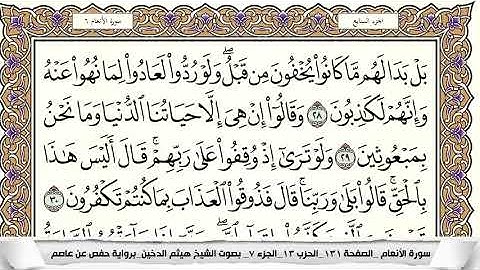 الجزء السابع
سورة الأنعام ٦
بَلْ بَدَا لَهُم مَّا كَانُوا۟ يُخْفُونَ مِن قَبْلُ ۖ وَلَوْ رُدُّوا۟ لَعَادُوا۟ لِمَا نُهُوا۟ عَنْهُ
وَإِنَّهُمْ لَكَـٰذِبُونَ ٢٨ وَقَالُوٓا۟ إِنْ هِىَ إِلَّا حَيَاتُنَا ٱلدُّنْيَا وَمَا نَحْنُ
بِمَبْعُوثِينَ ٢٩ وَلَوْ تَرَىٰٓ إِذْ وُقِفُوا۟ عَلَىٰ رَبِّهِمْ ۚ قَالَ أَلَيْسَ هَـٰذَا
بِٱلْحَقِّ ۚ قَالُوا۟ بَلَىٰ وَرَبِّنَا ۚ قَالَ فَذُوقُوا۟ ٱلْعَذَابَ بِمَا كُنتُمْ تَكْفُرُونَ ٣٠
سورة الأنعام _ الصفحة ١٣١ _ الحزب ١٣ _ الجزء ٧ _ بصوت الشيخ هيثم الدخين _ برواية حفص عن عاصم